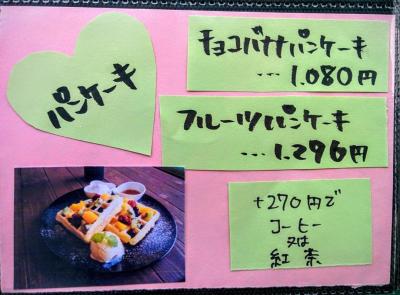 パンケーキ
チョコバナナパンケーキ
... 1.080円
フルーツパンケーキ
... 1.296円
+270円で
コーヒー
又は
紅茶